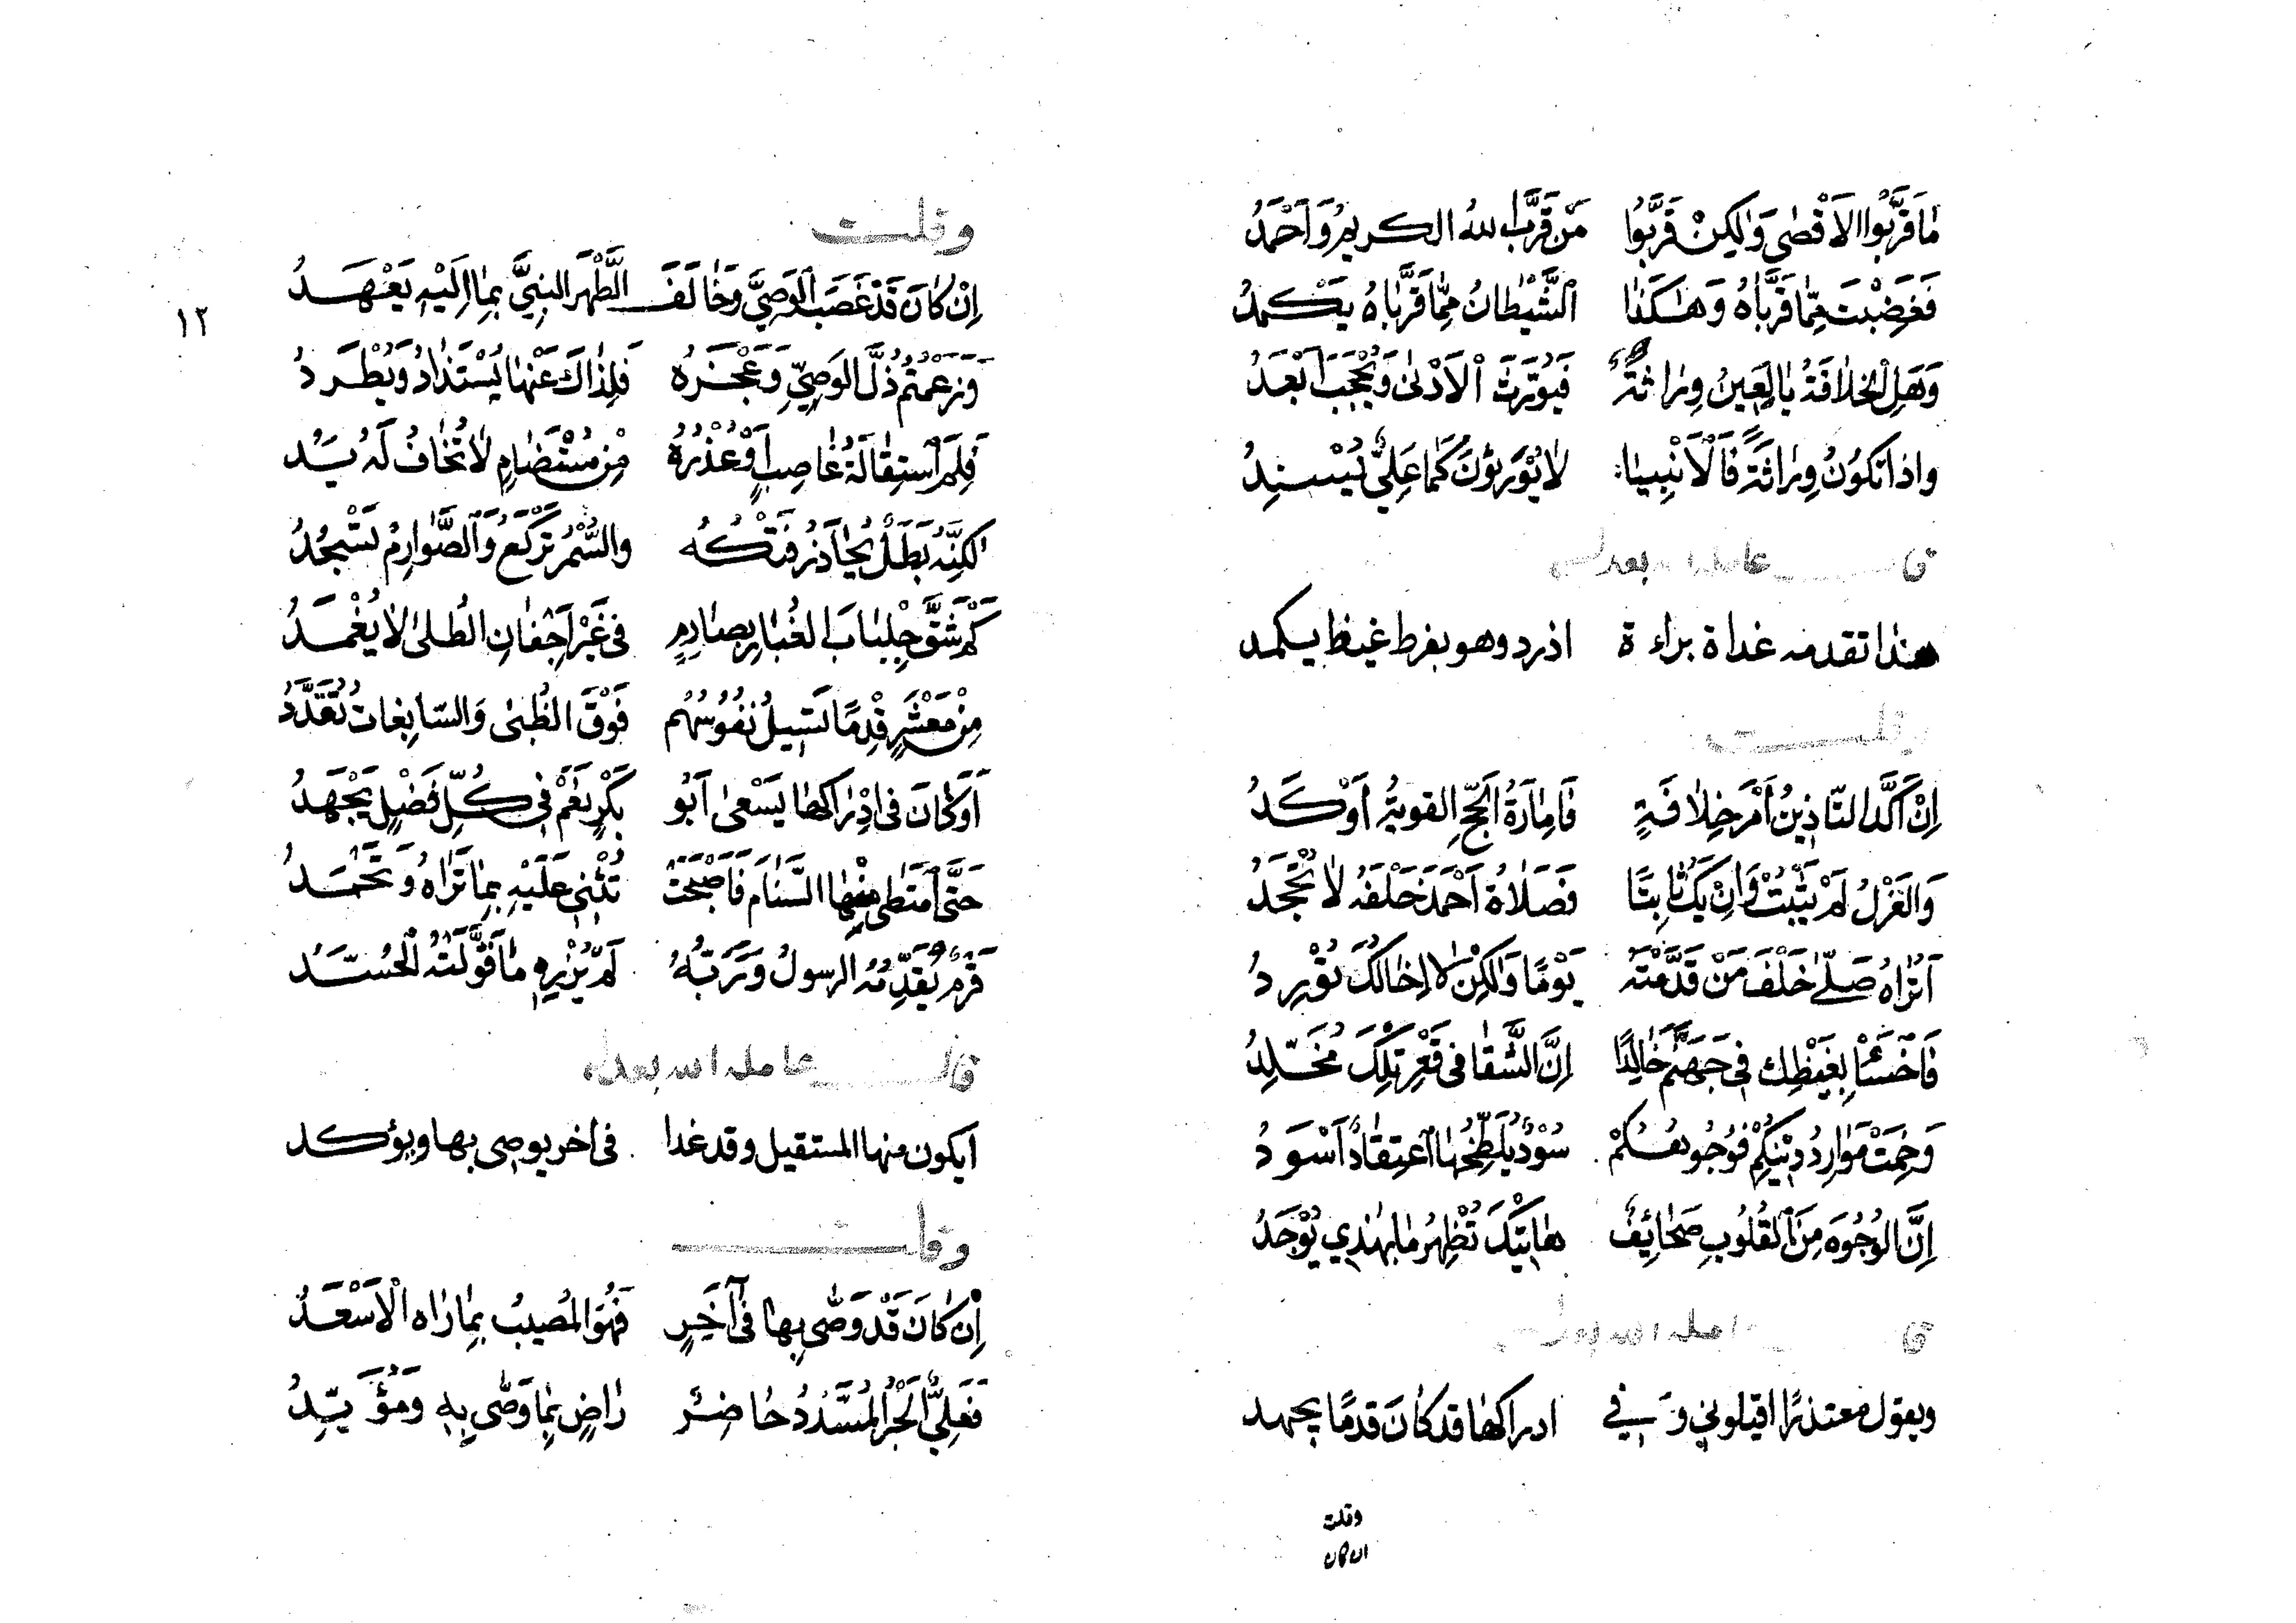 مَا قَرَّبُوا الاَقْصٰى وَلٰكِنْ قَرَّبُوا مَنْ قَرَّبَ اللهُ الكريمُ وَاَحْمَدُ
فَغَضِبْتَ مِمَّا قَرَّبَاهُ وَهٰكَذَا الشَّيْطَانُ مِمَّا قَرَّبَاهُ يَكْمدُ
وَهَلِ الْخِلَافَةُ يَا لَعِينُ وِرَاثَةٌ فَيُوَرَّثَ الْاَدْنٰى وَيُحْجَبَ اَبْعَدُ
واذا تَكُونُ وِرَاثَةً فَالْاَنْبِيَاءُ لَا يُوْرَثُونَ كَمَا عَلِيٌّ يُسْنِدُ
قال عامله الله بعدله
هذا تقدمه غداة براءة اذ رد وهو بفرط غيظ يكمد
وقلت
اِنْ اَكَّدَ التَّأذِينُ اَمْرَ خِلَافَةٍ فَاِمَارَةُ الحَجِّ القويةُ اَوْكَدُ
وَالعَزْلُ لَمْ يَثْبُتْ وَاِنْ يَكُ ثَابِتًا فَصَلَاةُ اَحْمَدَ خَلْفَهُ لَا تُجْحَدُ
اَتُرَاهُ صَلَّى خَلْفَ مَنْ قَدَّمْتَهُ يَوْمًا وَلٰكِنْ لَا اِخَالُكَ تُوْرِدُ
فَاخْسَأْ بِغَيْظِكَ فِي جَهَنَّمَ خَالِدًا اِنَّ الشَّقَا فِي قَعْرِ تِلْكَ مُخَلِّدُ
وَخِمَتْ مَوَارِدُ دِيْنِكُمْ فَوُجُوهُكُمْ سُوْدٌ يُلَطِّخُهَا اعْتِقَادٌ اَسْوَدُ
اِنَّ الوُجُوْهَ مِنَ القُلُوبِ صَحَائِفٌ هَاتِيْكَ تُظْهِرُ مَا بِهٰذِي يُوْجَدُ
قال عامله الله بعدله
ويقول معتذرًا اقيلوني وَفي ادراكها قد كَانَ قدمًا يجهد
وقلت
ان كان
وقلت
اِنْ كَانَ قَدْ غَصَبَ الوَصِيَّ وَخَالَفَ الطُّهْرَ النبِيَّ بِمَا اِلَيْهِ يَعْهَدُ
وَزَعَمْتُمُ ذُلَّ الوَصِيِّ وَعَجْزَهُ فَلِذَاكَ عَنْهَا يُسْتَذَادُ وَيُطْرَدُ
فَلِمَ اسْتِقَالَةُ غَاصِبٍ اَوْ عُذْرُهُ مِنْ مُسْتَضَامٍ لَا تُخَافُ لَهُ يَدُ
لٰكِنَّهُ بَطَلٌ يُحَاذَرُ فَتْكُهُ والسُّمْرُ تَرْكَعُ وَالصَّوَارِمُ تَسْجُدُ
كَمْ شَقَّ جِلْبَابَ الغُبَارِ بِصَارِمٍ فِي غَيْرِ اَجْفَانِ الطُّلىٰ لَا يُغْمَدُ
مِنْ مَعْشَرٍ قِدْمًا تَسِيلُ نُفُوسُهُم فَوْقَ الظُّبىٰ وَالسَّابِغَاتُ تُقَدَّدُ
اَوَكَانَ فِي اِدْرَاكِهَا يَسْعىٰ اَبُو بَكْرٍ نَعَمْ فِي كُلِّ فَضْلٍ يَجْهَدُ
حَتَّى امْتَطٰى مِنْهَا السَّنَامَ فَاَصْبَحَتْ تُثْنِي عَلَيْهِ بِمَا تَرَاهُ وَتَحْمَدُ
قَرْمٌ يُقَدِّمُهُ الرسولُ وَرَبُّهُ لَمْ يُزْرِهِ مَا قَوَّلَتْهُ الْحُسَّدُ
قال عامله الله بعدله
اَيكون منها المستقيل وقد غدا في اخر يوصي بها ويؤكد
وقلت
اِنْ كَانَ قَدْ وَصّٰى بِهَا فِي آخَرٍ فَهُوَ المُصِيبُ بِمَا رَاٰه الْاَسْعَدُ
فَعَلِيٌّ الحَبْرُ المُسَدَّدُ حَاضِرٌ رَاضٍ بِمَا وَصّٰى بِهِ وَمُؤَيِّدُ
١٢